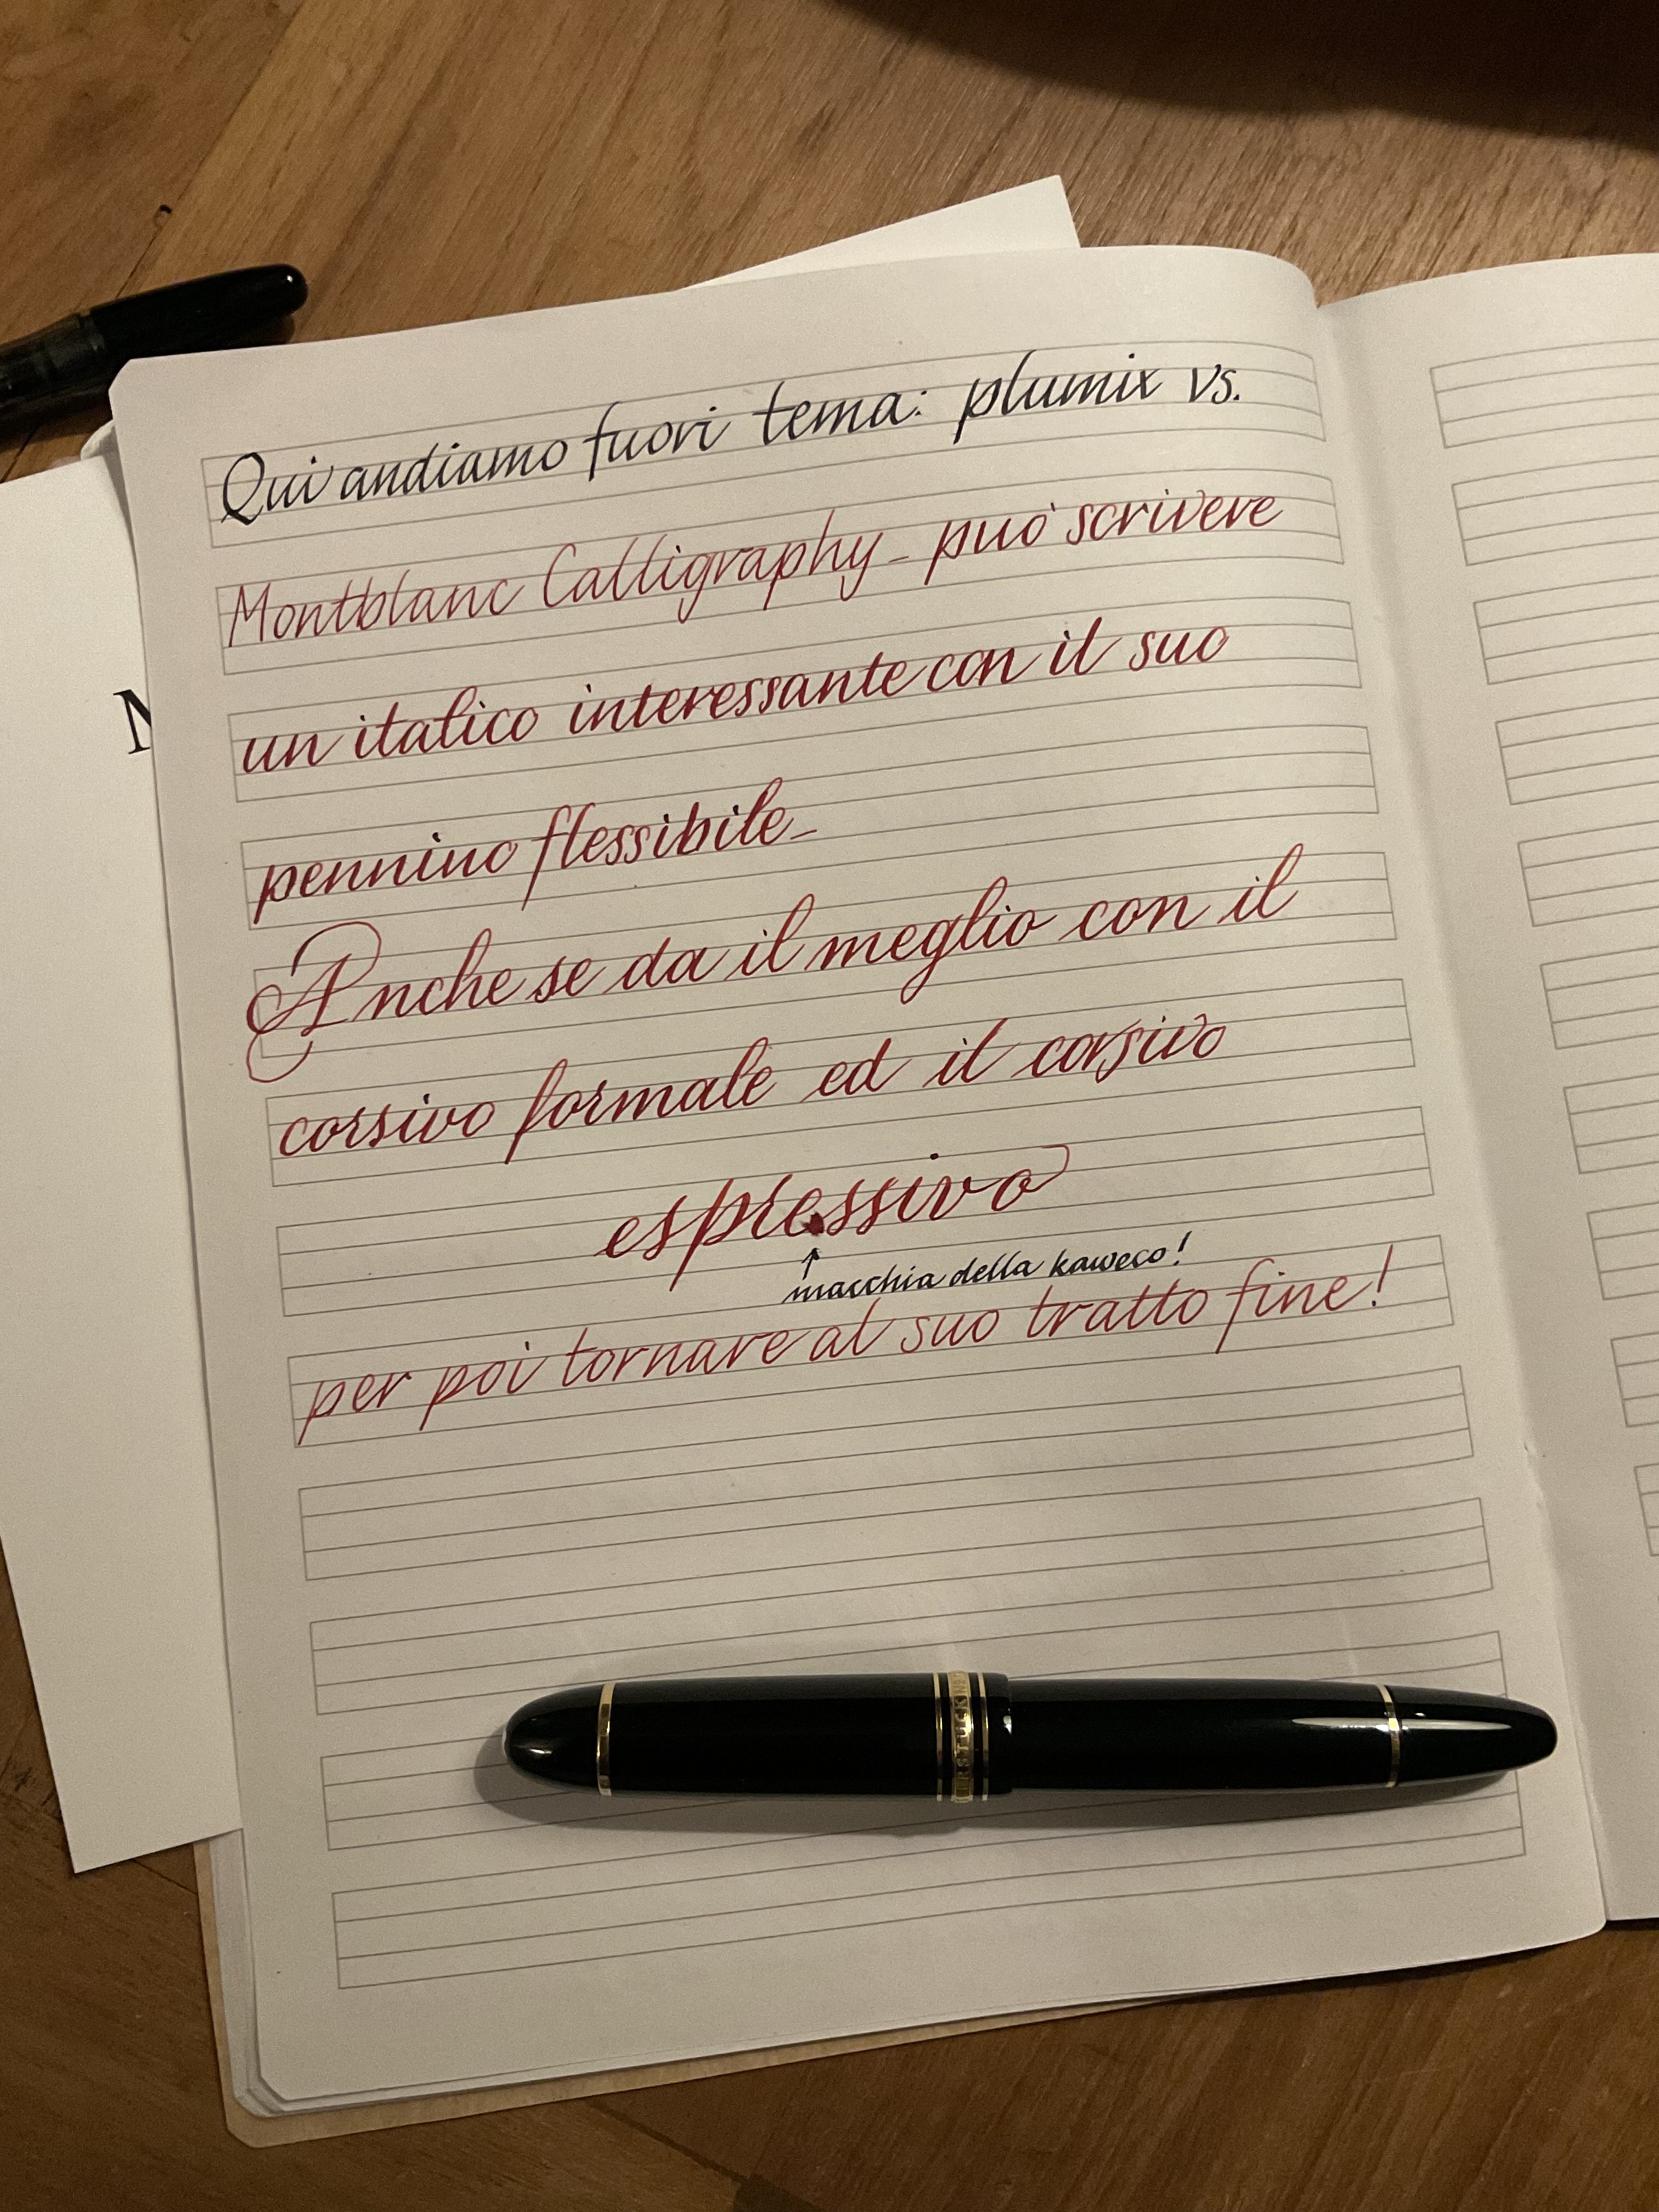 Qui andiamo fuori tema: plumix vs.
Montblanc Calligraphy_ può scrivere
un italico interessante con il suo
pennino flessibile_
Anche se da il meglio con il
corsivo formale ed il corsivo
espressivo
↑
macchia della kaweco!
per poi tornare al suo tratto fine!